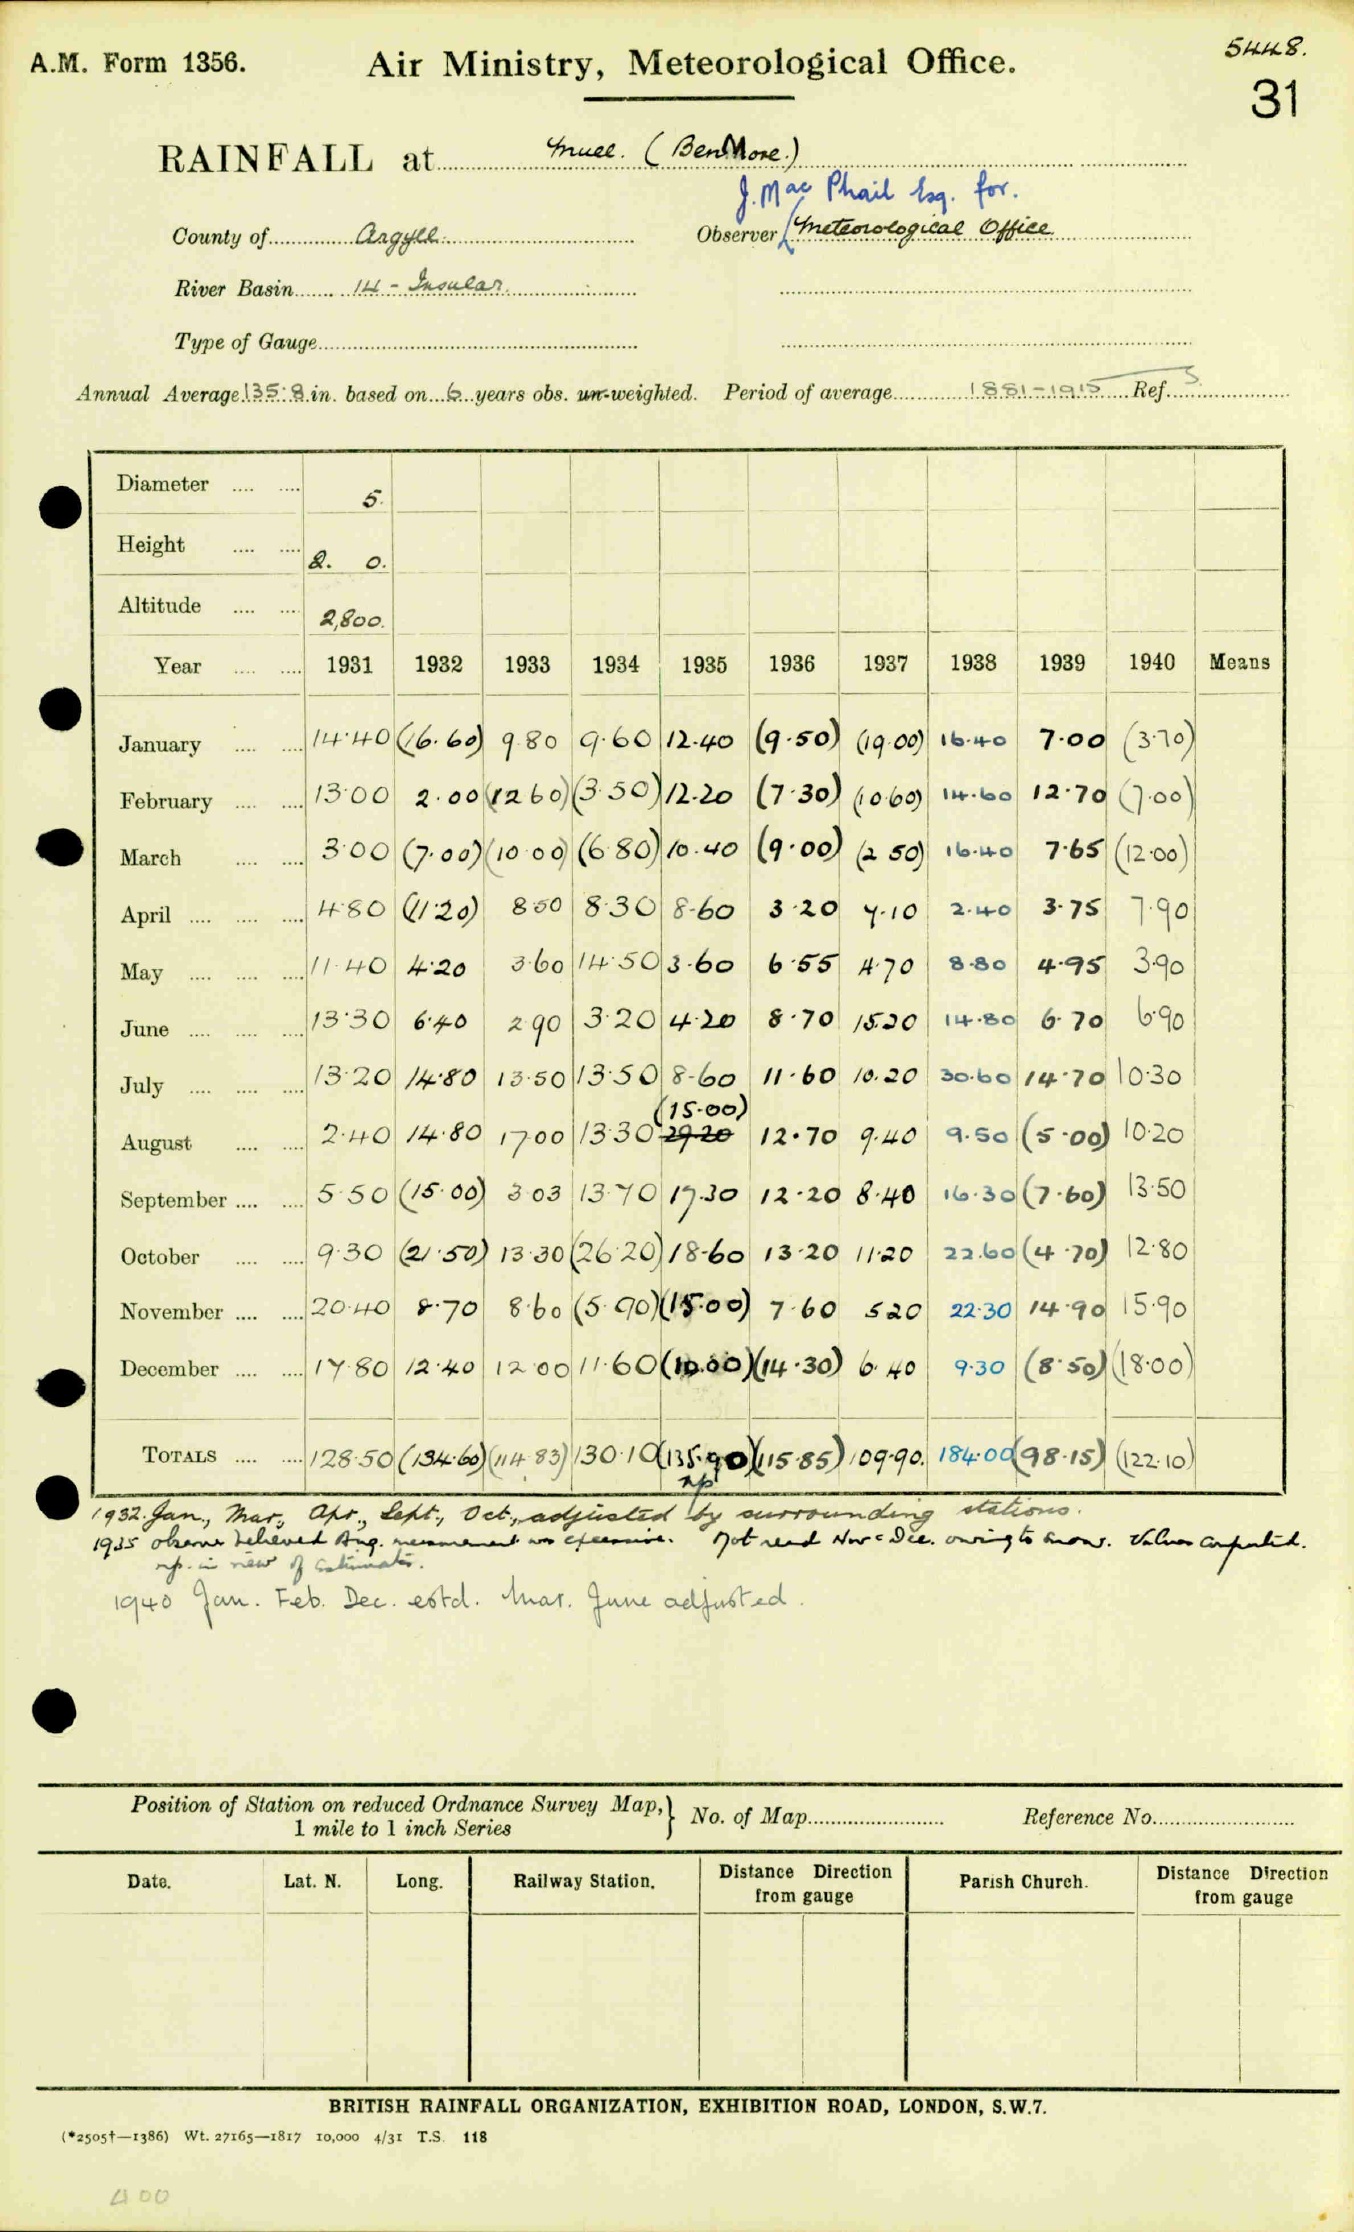 A.M. Form 1356.
Air Ministry, Meteorological Office.
5448.
31
RAINFALL at Mull. (Ben More.)
J. Mac Phail Esq. for.
County of Argyll. Observer (Meteorological Office
River Basin 14 - Insular.
Type of Gauge
Annual Average 135.8 in. based on 6 years obs. un-weighted. Period of average 1881-1915 Ref. S
Diameter 5.
Height 2. 0.
Altitude 2,800.
Year 1931 1932 1933 1934 1935 1936 1937 1938 1939 1940 Means
January 14.40 (16.60) 9.80 9.60 12.40 (9.50) (19.00) 16.40 7.00 (3.70)
February 13.00 2.00 (12.60) (3.50) 12.20 (7.30) (10.60) 14.60 12.70 (7.00)
March 3.00 (7.00) (10.00) (6.80) 10.40 (9.00) (2.50) 16.40 7.65 (12.00)
April 4.80 (11.20) 8.50 8.30 8.60 3.20 7.10 2.40 3.75 7.90
May 11.40 4.20 3.60 14.50 3.60 6.55 4.70 8.80 4.95 3.90
June 13.30 6.40 2.90 3.20 4.20 8.70 15.20 14.80 6.70 6.90
July 13.20 14.80 13.50 13.50 8.60 11.60 10.20 30.60 14.70 10.30
(15.00)
August 2.40 14.80 17.00 13.30 29.20 12.70 9.40 9.50 (5.00) 10.20
September 5.50 (15.00) 3.03 13.70 17.30 12.20 8.40 16.30 (7.60) 13.50
October 9.30 (21.50) 13.30 (26.20) 18.60 13.20 11.20 22.60 (4.70) 12.80
November 20.40 8.70 8.60 (5.90) (15.00) 7.60 5.20 22.30 14.90 15.90
December 17.80 12.40 12.00 11.60 (10.00) (14.30) 6.40 9.30 (8.50) (18.00)
TOTALS 128.50 (134.60) (114.83) 130.10 (135.90) (115.85) 109.90. 184.00 (98.15) (122.10)
np
1932. Jan., Mar., Apr., Sept., Oct., adjusted by surrounding stations.
1935 observer believed Aug. measurement was excessive. Not read Nov & Dec. owing to snow. Values computed.
np. in view of estimates.
1940 Jan. Feb. Dec. estd. Mar. June adjusted.
Position of Station on reduced Ordnance Survey Map, 1 mile to 1 inch Series } No. of Map Reference No.
Date. Lat. N. Long. Railway Station. Distance Direction from gauge Parish Church. Distance Direction from gauge
BRITISH RAINFALL ORGANIZATION, EXHIBITION ROAD, LONDON, S.W.7.
(*2505†—1386) Wt. 27165—1817 10,000 4/31 T.S. 118
400